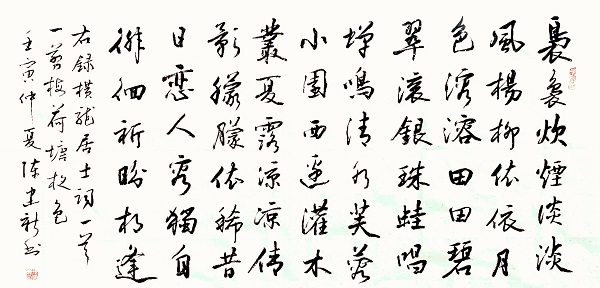 裊裊炊煙淡淡
風楊柳依依月
色溶溶田田碧
翠滾銀珠蛙唱
蟬鳴清水芙蓉
小園西邊灌木
叢夏露涼涼倩
影朦朧依稀昔
日戀人容獨自
徘徊祈盼相逢
右録橫龍居士詞一首
一剪梅荷塘夜色
壬寅仲夏陳建新书